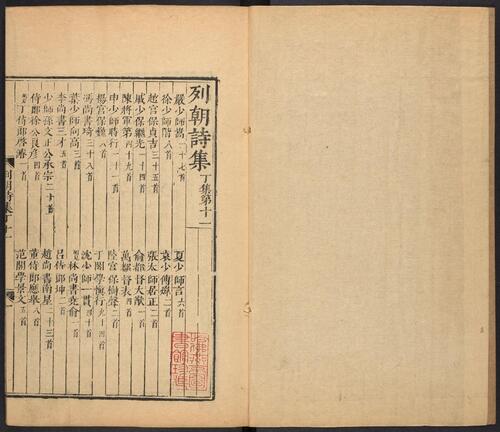 列朝詩集 丁集第十一
嚴少師嵩一十七首 夏少師言六首
徐少師階八首 袁少傅煒二首
趙宮保貞吉三十五首 張太師居正二首
戚少保繼光一十四首 俞都督大猷一首
陳將軍第四十九首 萬都督表四首
申少師時行一十一首 陸宮保樹聲二首
楊宮保巍八首 于閣學慎行九十四首
馮尚書琦三十八首 沈少師一貫四十首
葉少師向高三首 附見林尚書堯俞一首
李尚書三才五首 呂侍郎坤二首
少師孫文正公承宗二十首 趙尚書南星二十三首
侍郎徐公良彥四首 董侍郎應舉八首
附見丁侍郎啓濬一首 范閣學景文五首
列朝詩集丁十一 一